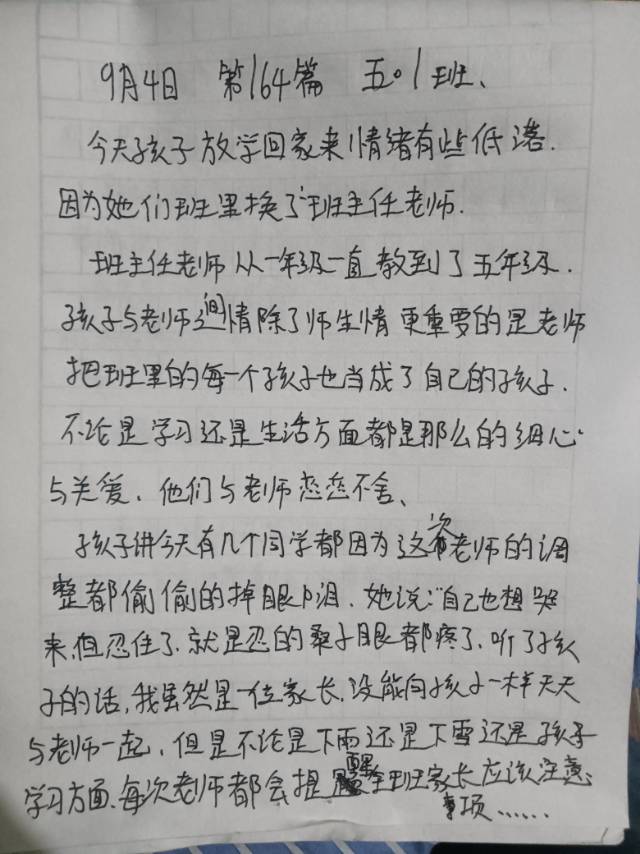 9月4日 第164篇 五〇1班、
今天孩子放学回家来情绪有些低落.
因为她们班里换了班主任老师.
班主任老师从一年级一直教到了五年级.
孩子与老师间情除了师生情更重要的是老师
把班里的每一个孩子也当成了自己的孩子.
不论是学习还是生活方面都是那么的细心
与关爱、他们与老师恋恋不舍、
孩子讲今天有几个同学都因为这次老师的调
整都偷偷的掉眼泪.她说:"自己也想哭
来,但忍住了.就是忍的桑子眼都疼了.听了孩
子的话,我虽然是一位家长.没能向孩子一样天天
与老师一起.但是不论是下雨还是下雪还是孩子
学习方面.每次老师都会提醒全班家长应该注意
事项......
1